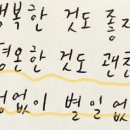 행복한 것도 좋지
평온한 것도 괜찮
없이 별일 없